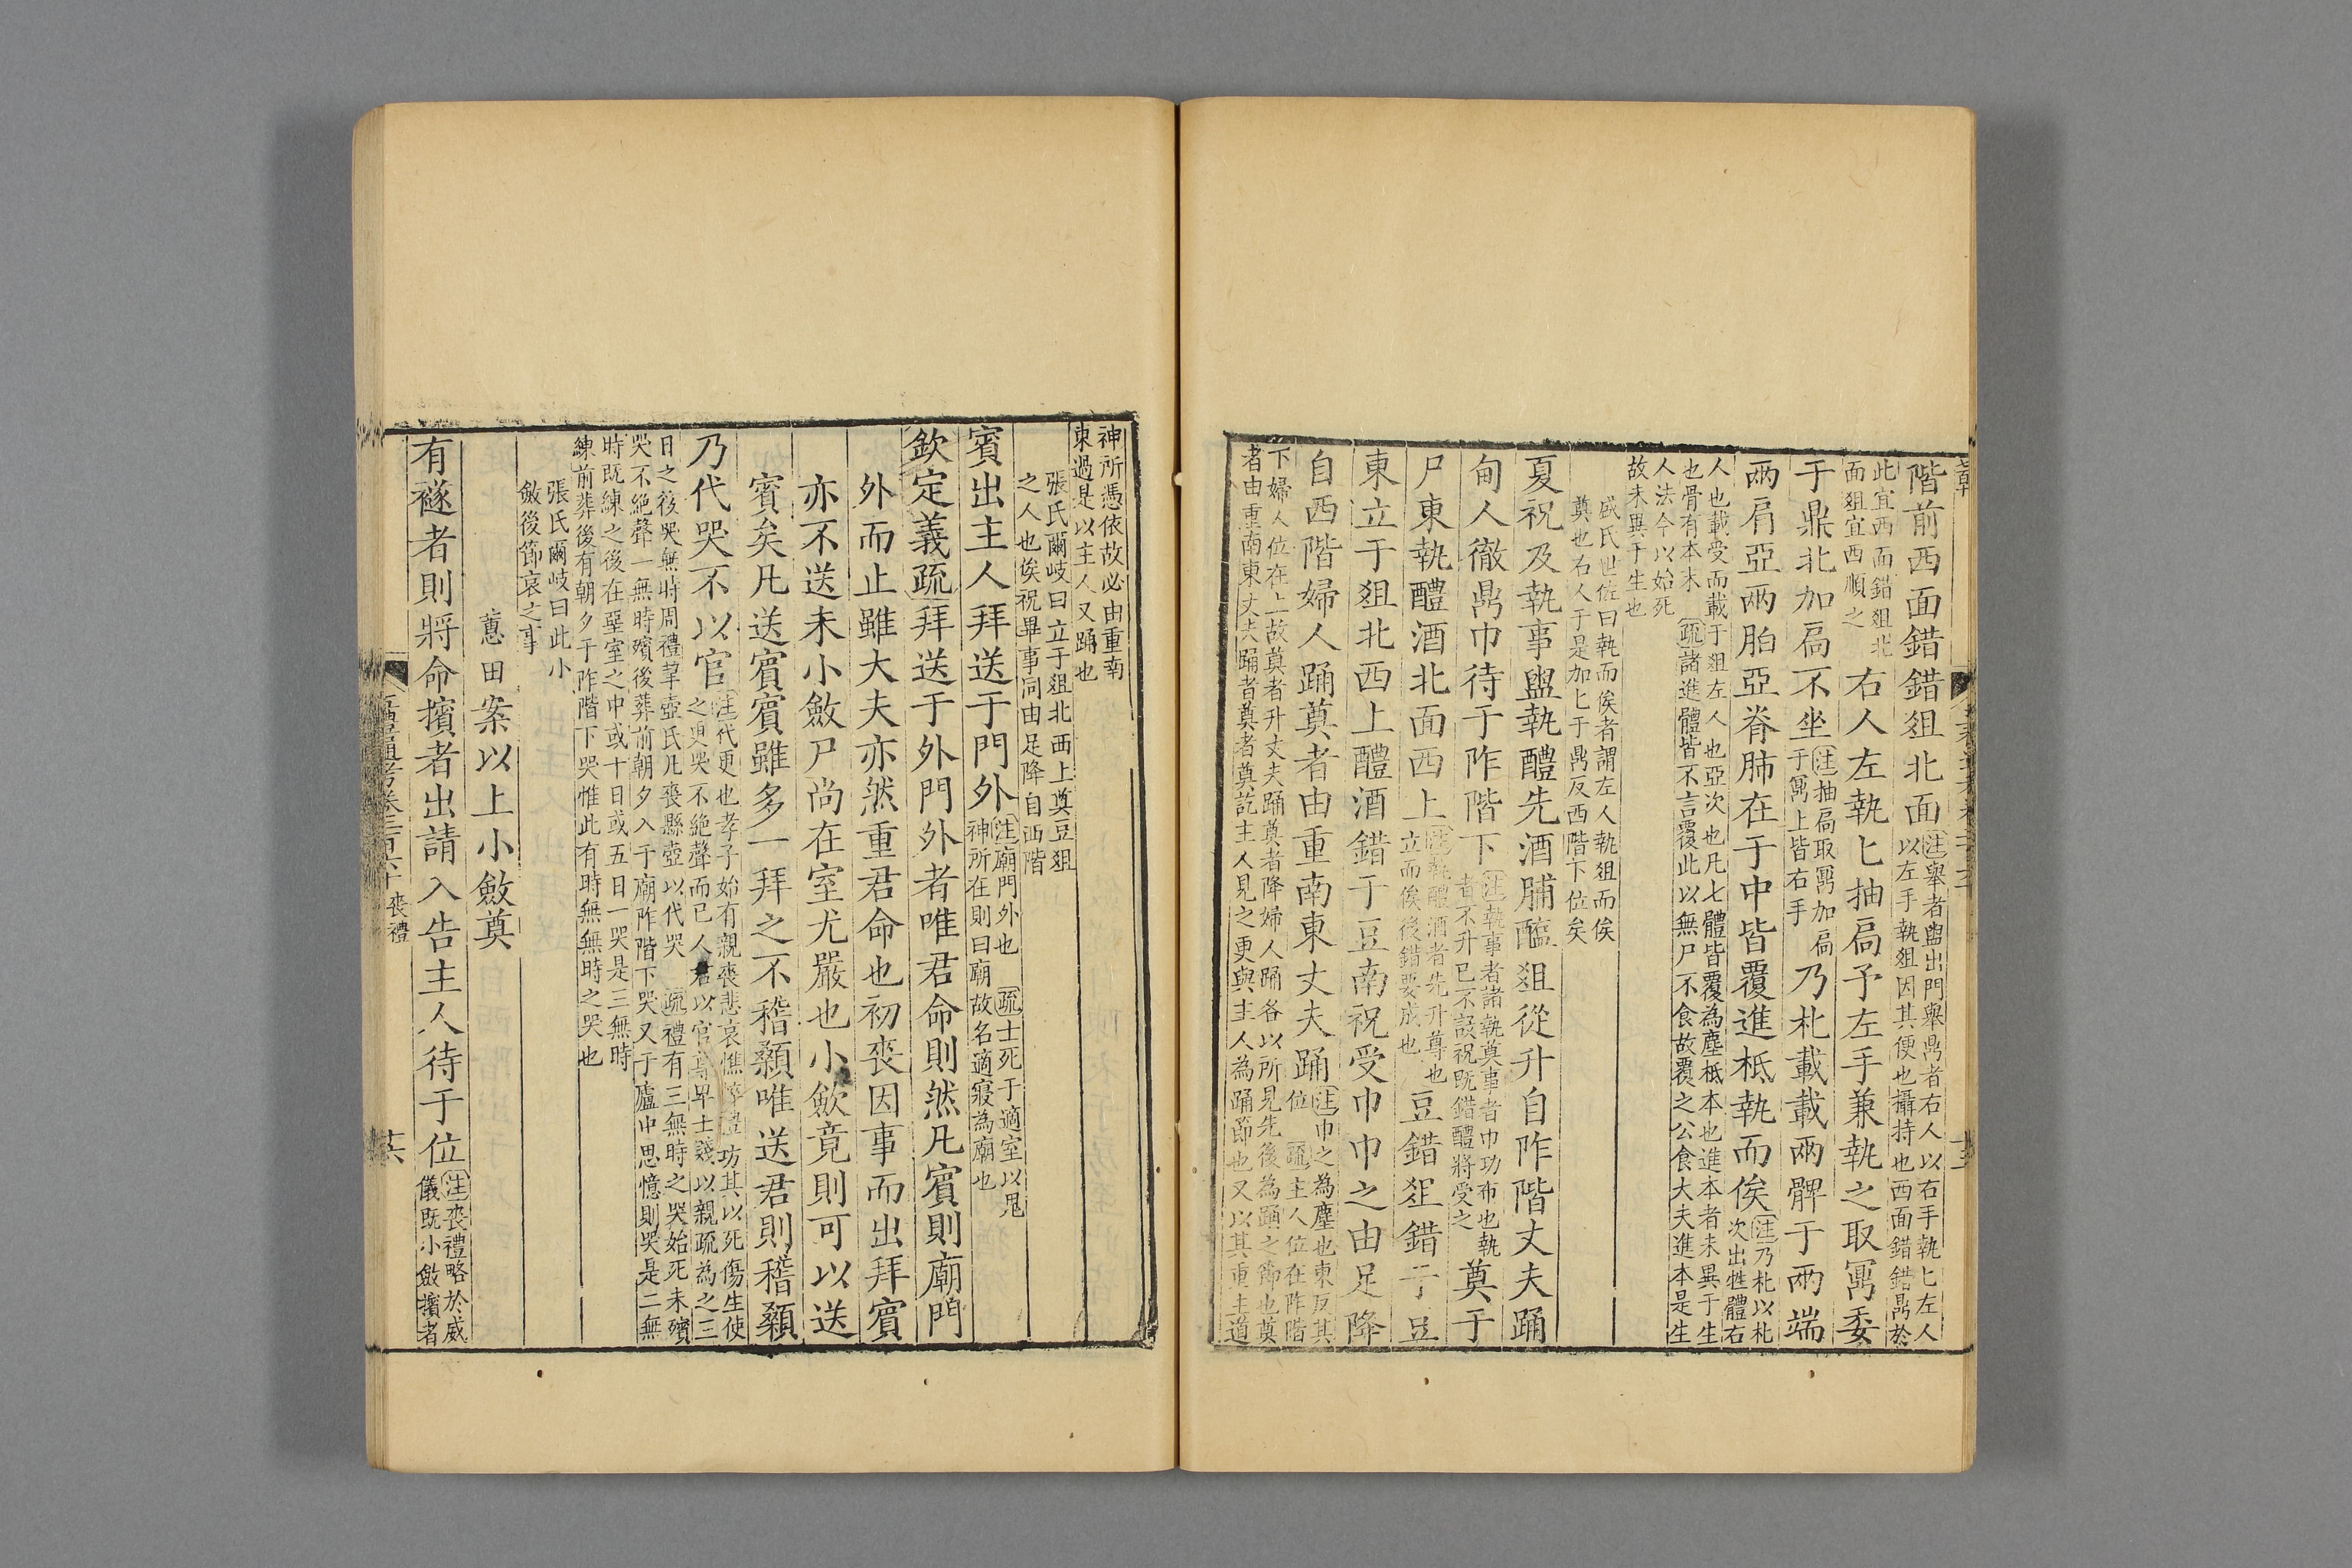 階前西面錯錯俎北面注舉者盥出門舉鼎者右人以右手執匕左人以左手執俎因其便也攝持也西面錯錯鼎於
此宜西面錯俎北面俎宜西順之右人左執匕抽扃予左手兼執之取鼏委
于鼎北加扃不坐注抽扃取鼏加扃于鼏上皆右手乃朼載載兩髀于兩端
兩肩亞兩胉亞脊肺在于中皆覆進柢執而俟注乃朼以朼次出牲體右
人也載受而載于俎左人也亞次也凡七體皆覆為塵柢本也進本者未異于生也骨有本末疏諸進體皆不言覆此以無尸不食故覆之公食大夫進本是生
人法今以始死故未異于生也
盛氏世佐曰執而俟者謂左人執俎而俟奠也右人于是加匕于鼎反西階下位矣
夏祝及執事盥執醴先酒脯醢俎從升自阼階丈夫踊
甸人徹鼎巾待于阼階下注執事者諸執奠事者巾功布也執者不升已不設祝既錯醴將受之奠于
尸東執醴酒北面西上注執醴酒者先升尊也立而俟後錯要成也豆錯俎錯于豆
東立于俎北西上醴酒錯于豆南祝受巾巾之由足降
自西階婦人踊奠者由重南東丈夫踊注巾之為塵也東反其位疏主人位在阼階
下婦人位在上故奠者升丈夫踊奠者降婦人踊各以所見先後為踊之節也奠者由重南東丈夫踊者奠者奠訖主人見之更與主人為踊節也又以其重主道
神所憑依故必由重南東過是以主人又踊也
張氏爾岐曰立于俎北西上奠豆俎之人也俟祝畢事同由足降自西階
賓出主人拜送于門外注廟門外也疏士死于適室以鬼神所在則曰廟故名適寢為廟也
欽定義疏拜送于外門外者唯君命則然凡賓則廟門
外而止雖大夫亦然重君命也初喪因事而出拜賓
亦不送未小斂尸尚在室尤嚴也小斂竟則可以送
賓矣凡送賓賓雖多一拜之不稽顙唯送君則稽顙
乃代哭不以官注代更也孝子始有親喪悲哀憔悴禮坊其以死傷生使之更哭不絕聲而已人君以官尊卑士賤以親疏為之三
日之後哭無時周禮挈壺氏凡喪縣壺以代哭疏禮有三無時之哭始死未殯哭不絕聲一無時殯後葬前朝夕入于廟阼階下哭又于廬中思憶則哭是二無
時既練之後在堊室之中或十日或五日一哭是三無時練前葬後有朝夕于阼階下哭惟此有時無無時之哭也
張氏爾岐曰此小斂後節哀之事
蕙田案以上小斂奠
有襚者則將命擯者出請入告主人待于位注喪禮略於威儀既小斂擯者
五禮通考卷二百六十 喪禮